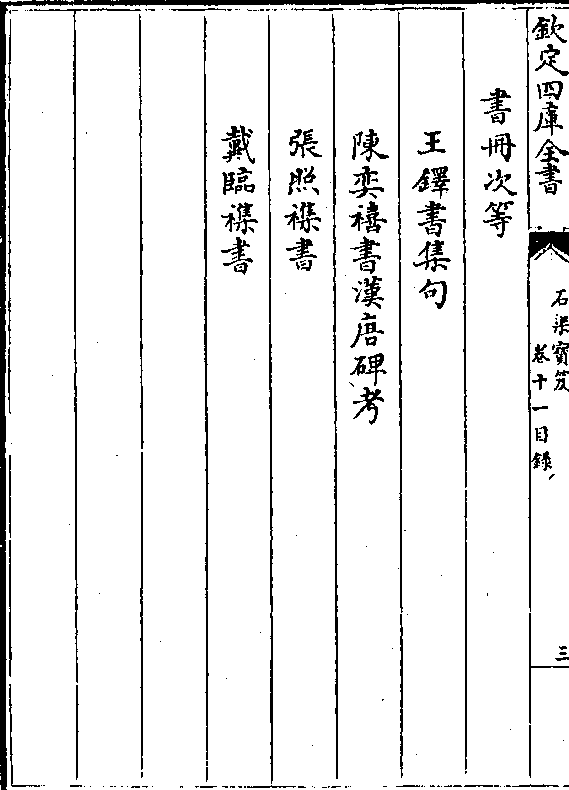 欽定四庫全書
石渠寶笈
卷十一目録
三
書冊次等
王鐸書集句
陳奕禧書漢唐碑考
張照襍書
戴臨襍書